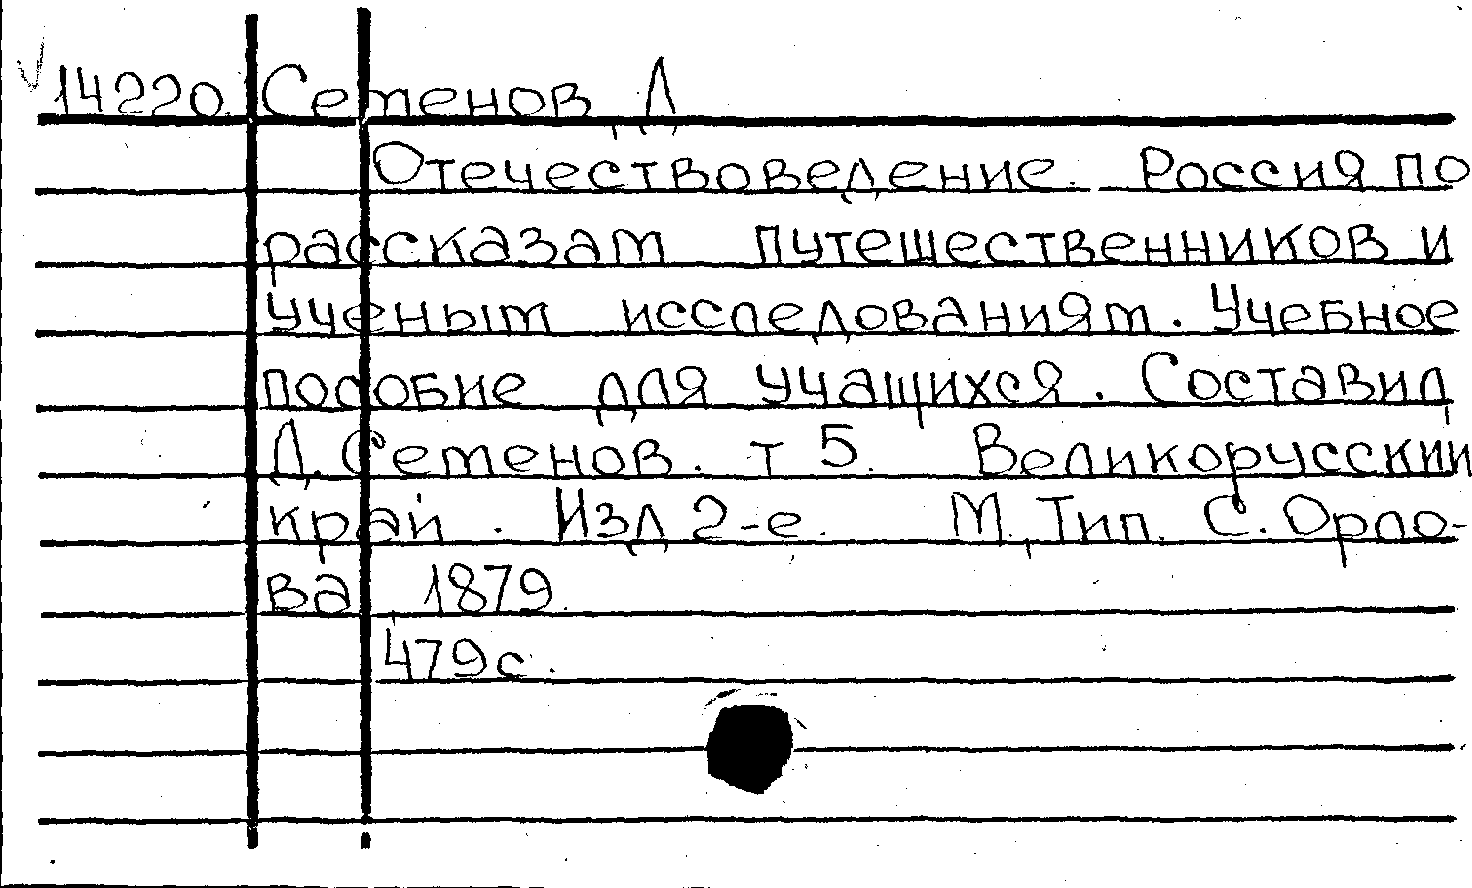 14220. Семенов, Д.
Отечествоведение. Россия по
рассказам путешественников и
ученым исследованиям. Учебное
пособие для учащихся. Составил
Д. Семенов. т 5. Великорусский
край. Изд 2-е. М., Тип. С. Орло-
ва 1879.
479с.